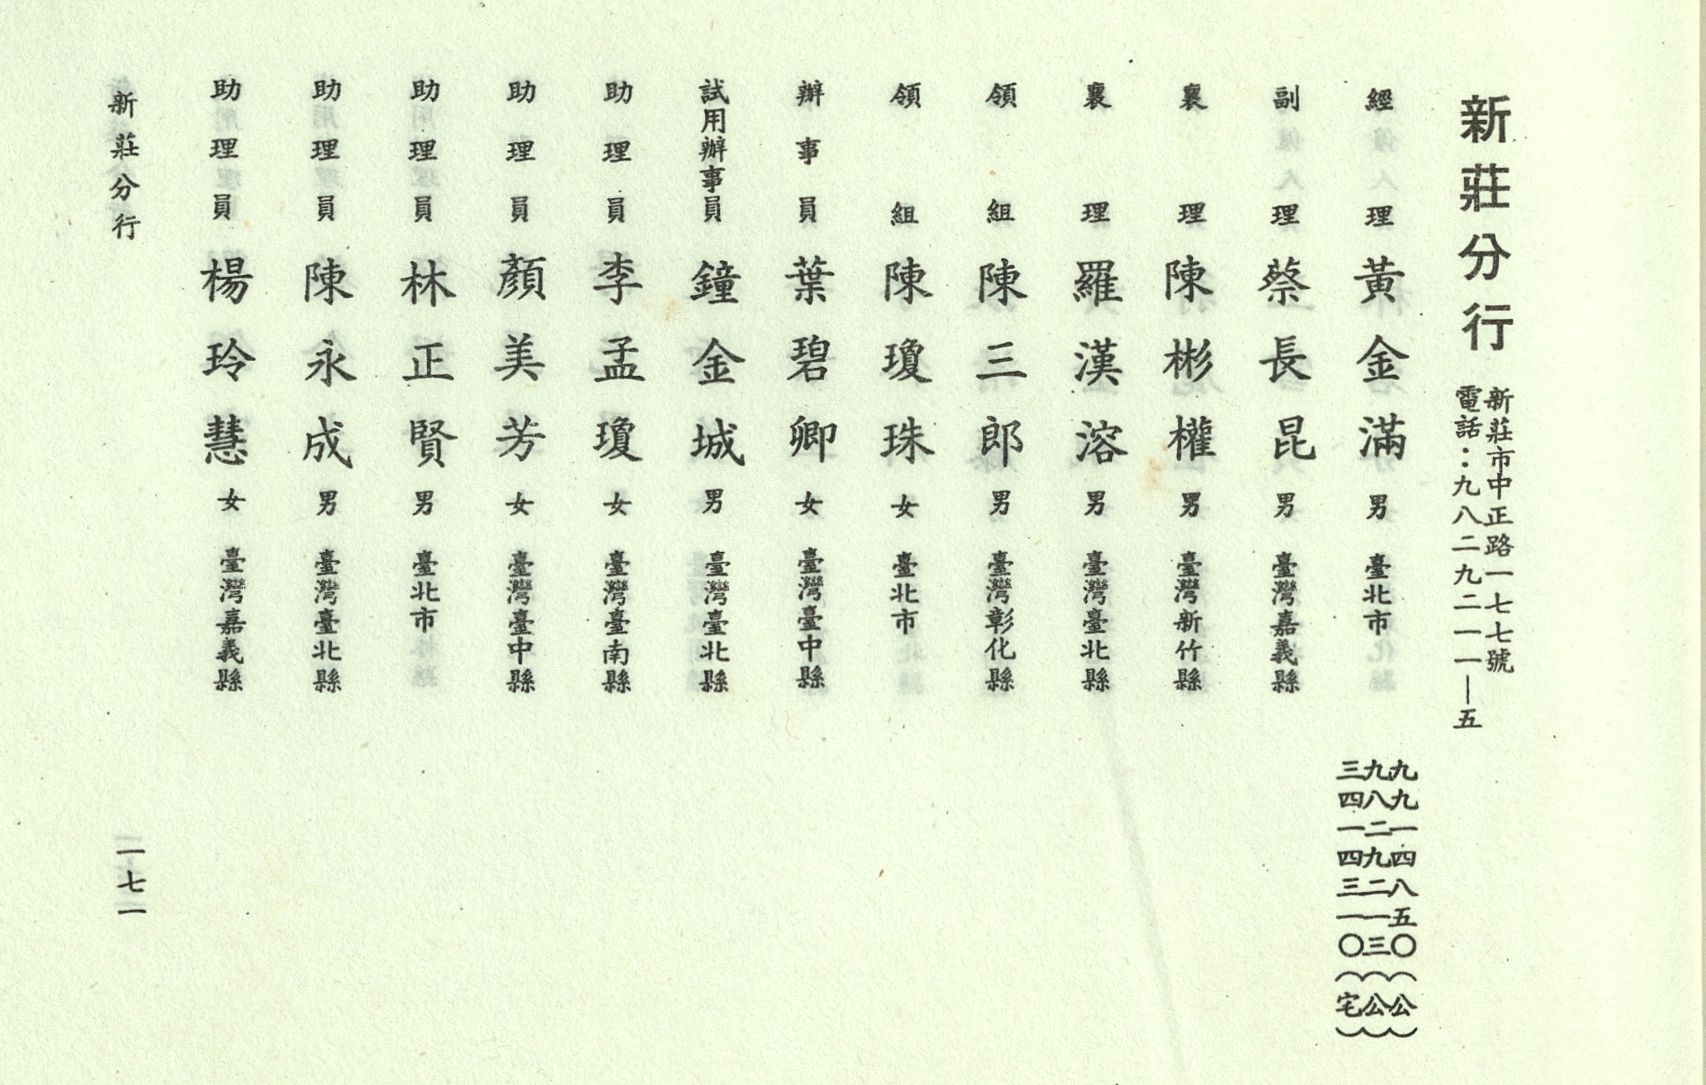 新莊分行
新莊市中正路一七七號
電話：九八二九二一一—五
經理 黃金滿 男 臺北市 九九一四八五〇（公）
九八二九二一三（公）
三四一四三一〇（宅）
副理 蔡長昆 男 臺灣嘉義縣
襄理 陳彬權 男 臺灣新竹縣
襄理 羅漢溶 男 臺灣臺北縣
領組 陳三郎 男 臺灣彰化縣
領組 陳瓊珠 女 臺北市
辦事員 葉碧卿 女 臺灣臺中縣
試用辦事員 鐘金城 男 臺灣臺北縣
助理員 李孟瓊 女 臺灣臺南縣
助理員 顏美芳 女 臺灣臺中縣
助理員 林正賢 男 臺北市
助理員 陳永成 男 臺灣臺北縣
助理員 楊玲慧 女 臺灣嘉義縣
新莊分行
一七一